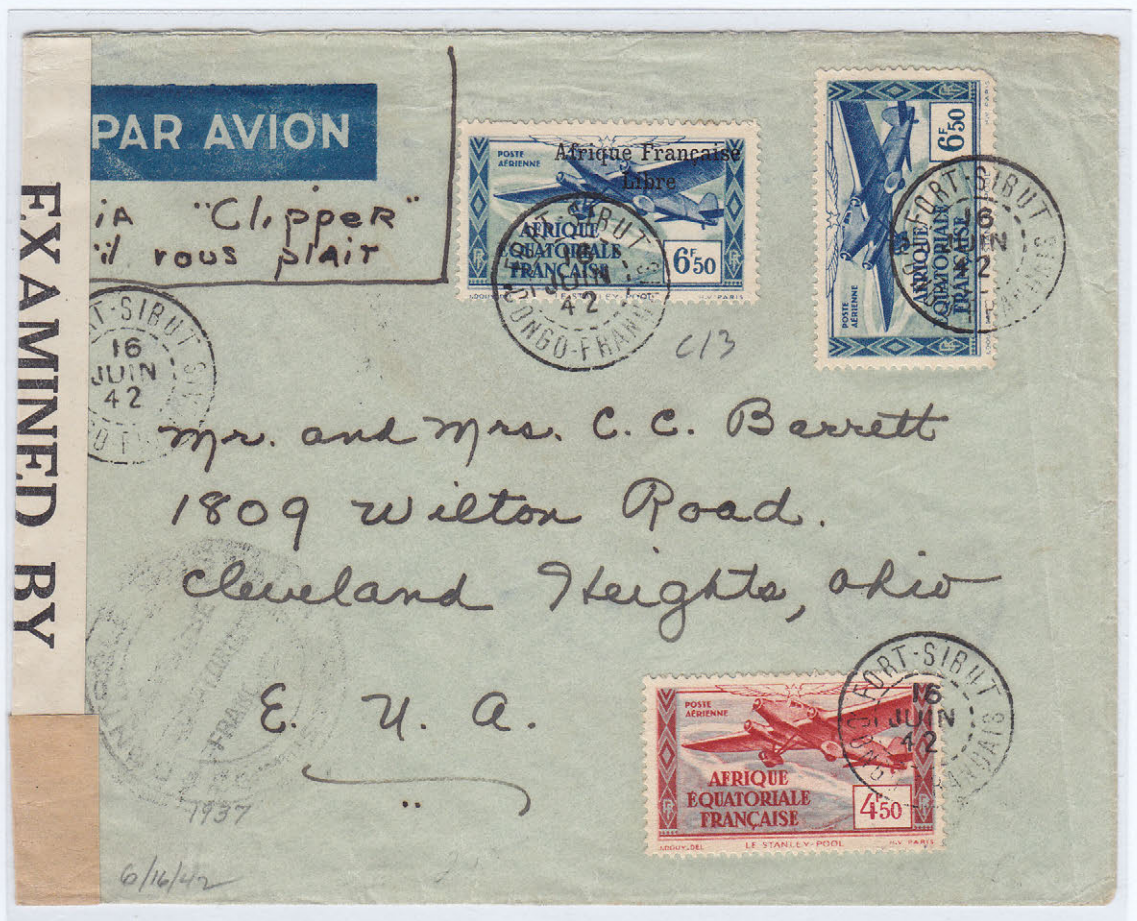 PAR AVION
iA "Clipper"
il vous plait
EXAMINED BY
POSTE
AÉRIENNE
Afrique Française
Libre
AFRIQUE
ÉQUATORIALE
FRANÇAISE
6F50
LE STANLEY-POOL
H.V. PARIS
FORT-SIBUT
16
JUIN
42
CONGO-FRANÇAIS
POSTE
AÉRIENNE
AFRIQUE
ÉQUATORIALE
FRANÇAISE
6F50
FORT-SIBUT
16
JUIN
42
C13
RT-SIBUT
16
JUIN
42
Mr. and Mrs. C. C. Barrett
1809 Wilton Road.
Cleveland Heights, Ohio
E. U. A.
POSTE
AÉRIENNE
AFRIQUE
ÉQUATORIALE
FRANÇAISE
4F50
LE STANLEY-POOL
H.V. PARIS
FORT-SIBUT
16
JUIN
42
1937
6/16/42